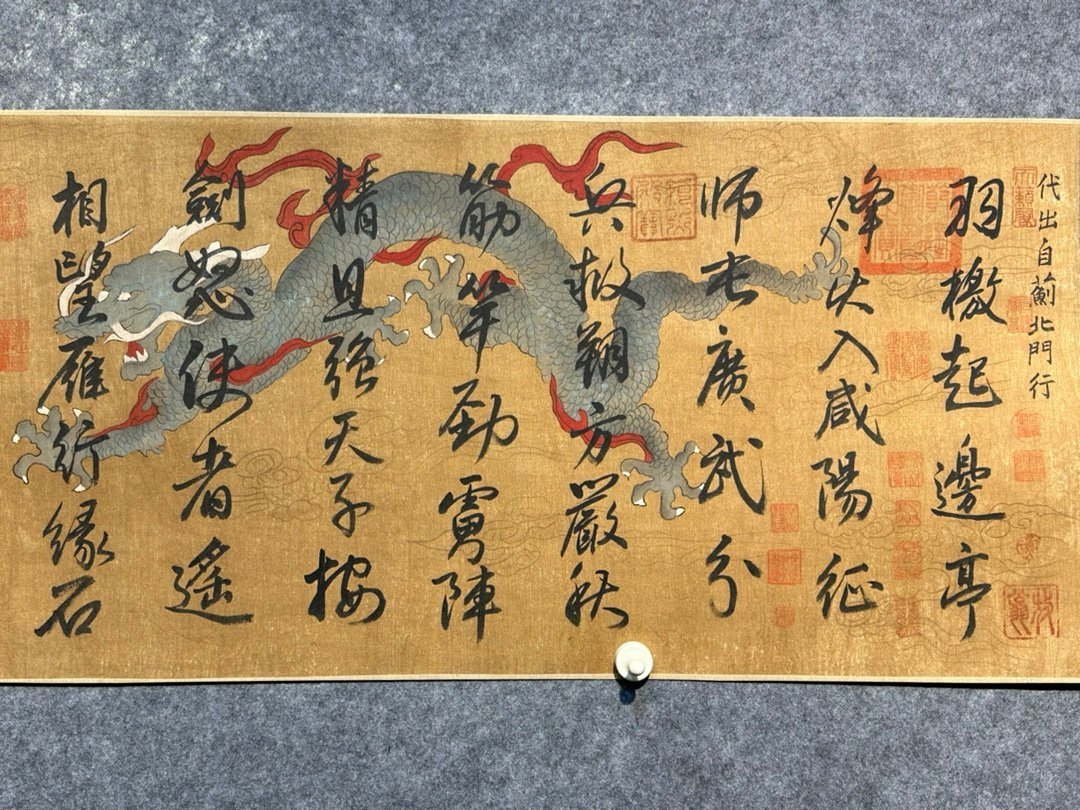 代出自薊北門行
羽檄起邊亭
烽火入咸陽征
师屯廣武分
兵救朔方嚴秋
筋竿勁虜陣
精且強天子按
劍怒使者遙
相望雁行緣石